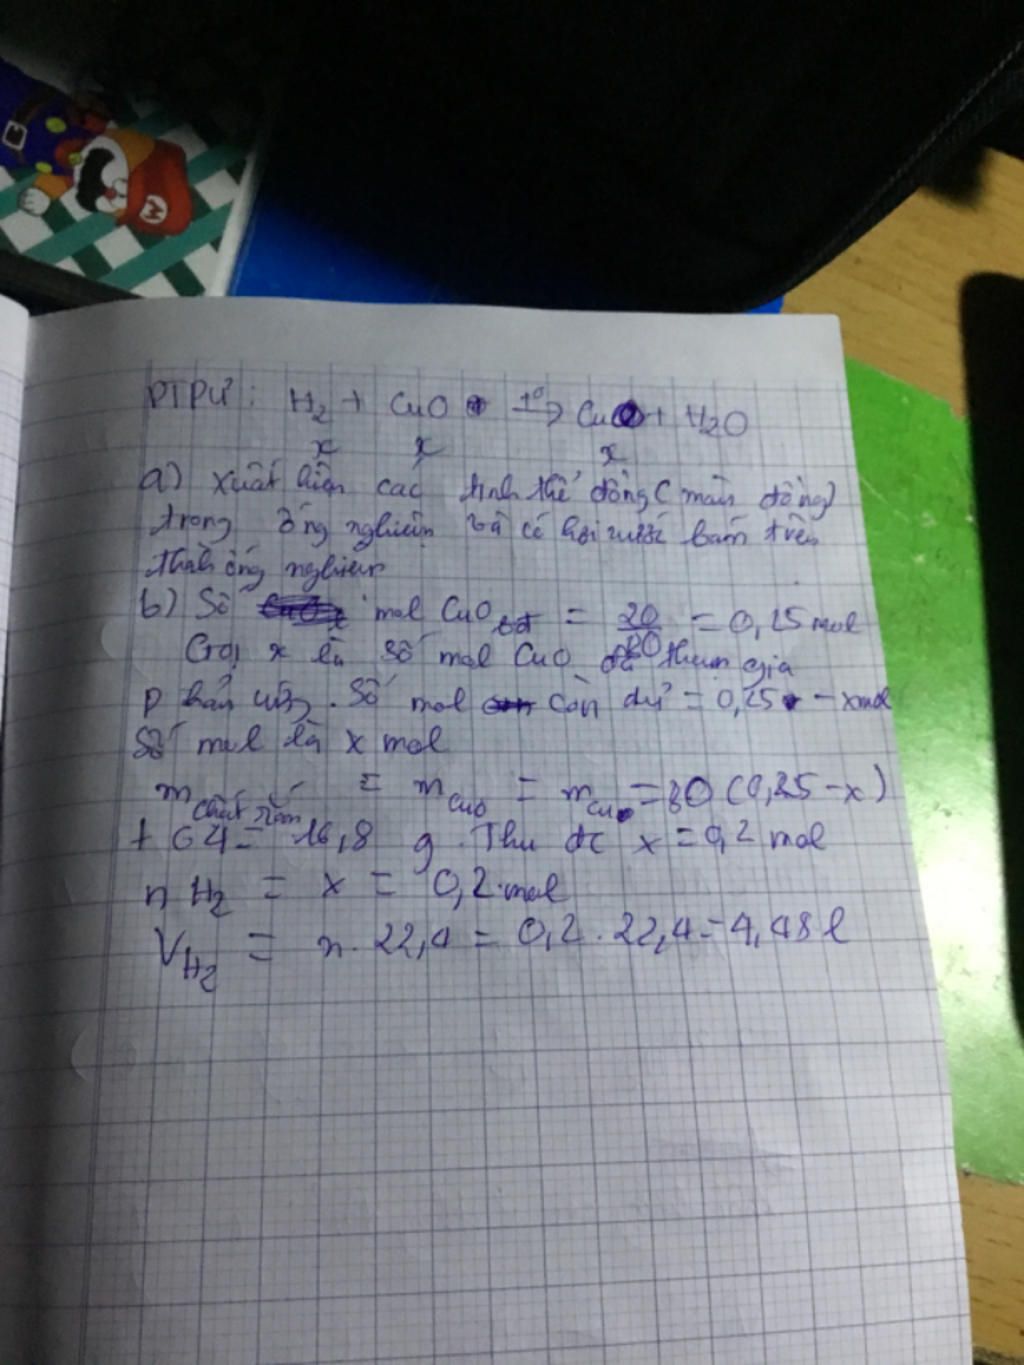 M
PTPƯ: H2 + CuO t° → Cu + H2O
x x x
a) xuất hiện các tinh thể đồng (màu đồng)
trong ống nghiệm và có hơi nước bám trên
thành ống nghiệm
b) Số mol CuO = 20/80 = 0,25 mol
Gọi x là số mol CuO đã tham gia
phản ứng. Số mol còn dư = 0,25 - x mol
số mol là x mol
m chất rắn = m CuO = m Cu = 80 (0,25 - x)
+ 64 = 16,8 g. Thu đc x = 0,2 mol
n H2 = x = 0,2 mol
V H2 = n . 22,4 = 0,2 . 22,4 = 4,48 l